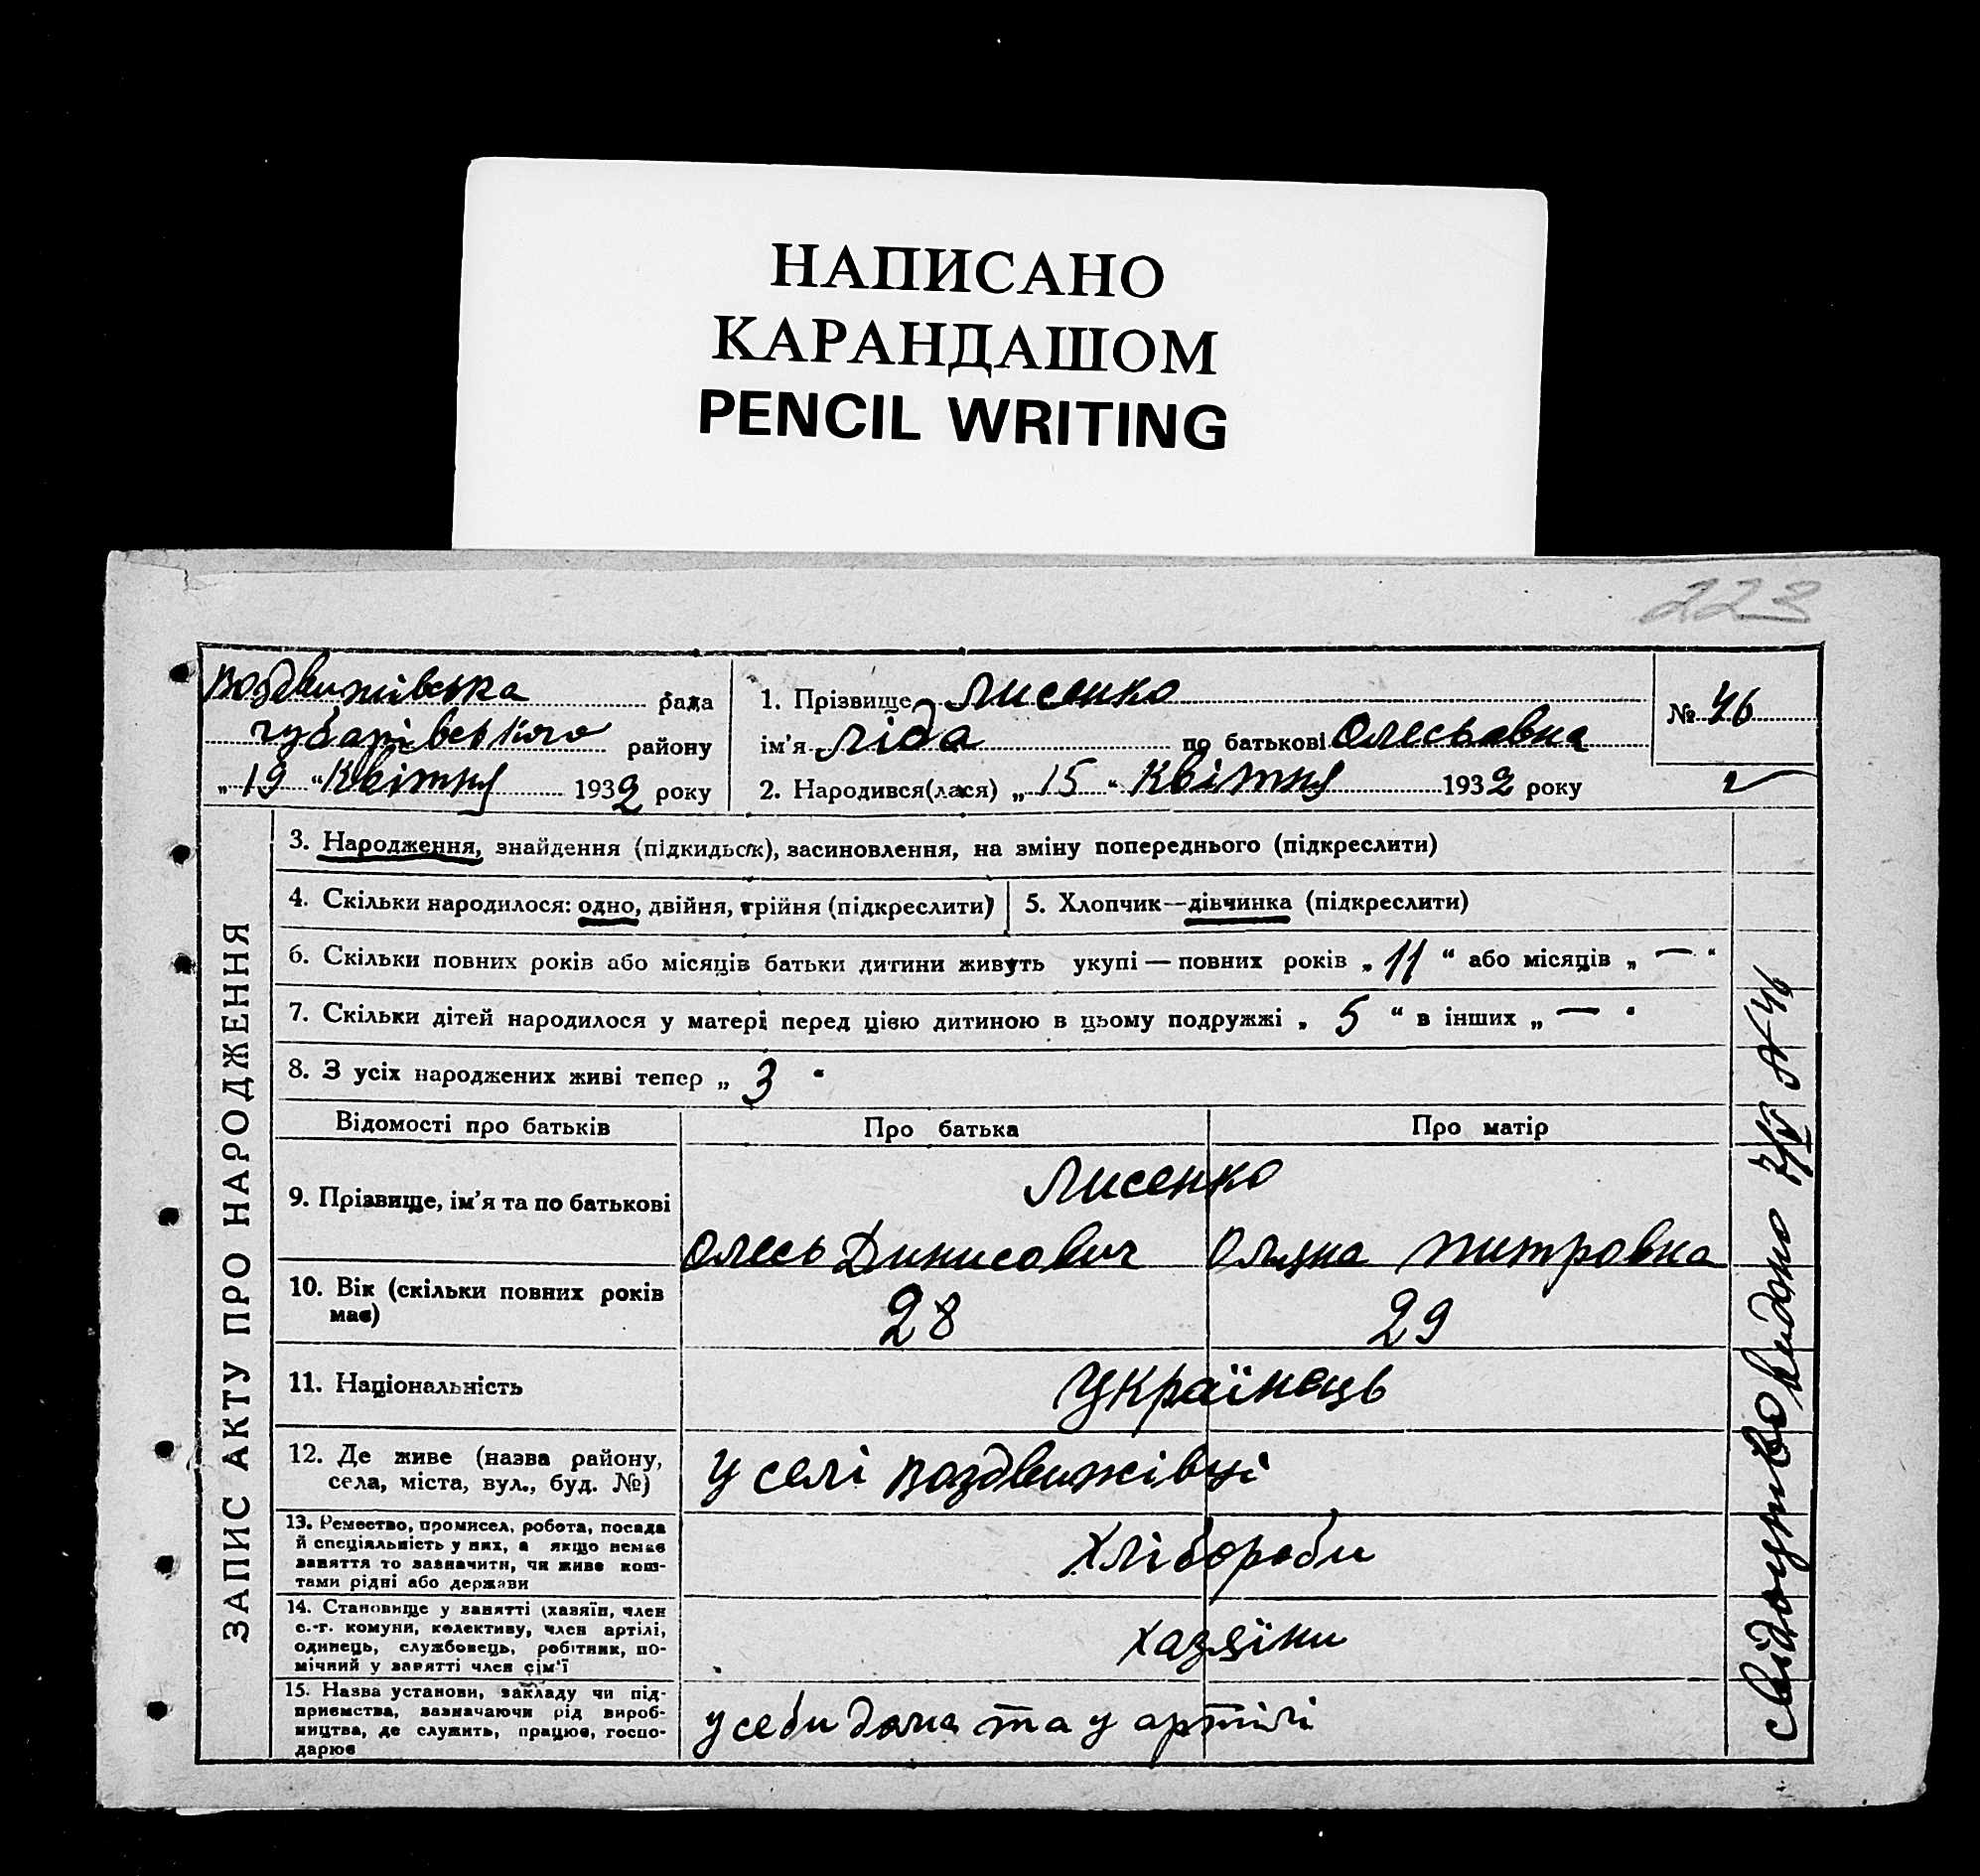 НАПИСАНО
КАРАНДАШОМ
PENCIL WRITING
223
Воздвижівська рада
Губарівського району
„19“ Квітня 1932 року
1. Прізвище Лисенко
ім'я Ліда по батькові Олесьавна
2. Народився(лася) „15“ Квітня 1932 року
№ 46
ЗАПИС АКТУ ПРО НАРОДЖЕННЯ
3. Народження, знайдення (підкидьок), засиновлення, на зміну попереднього (підкреслити)
4. Скільки народилося: одно, двійня, трійня (підкреслити)
5. Хлопчик—дівчинка (підкреслити)
6. Скільки повних років або місяців батьки дитини живуть укупі — повних років „11“ або місяців „—“
7. Скільки дітей народилося у матері перед цією дитиною в цьому подружжі „5“ в інших „—“
8. З усіх народжених живі тепер „3“
Відомості про батьків
Про батька
Про матір
9. Прізвище, ім'я та по батькові
Лисенко
Олесь Динисович
Оляна Митровна
10. Вік (скільки повних років
має)
28
29
11. Національність
Українець
12. Де живе (назва району,
села, міста, вул., буд. №)
у селі Воздвижівці
13. Ремество, промисел, робота, посада
й спеціяльність у них, а якщо немає
заняття то зазначити, чи живе кош-
тами рідні або держави
Хлібороби
14. Становище у занятті (хазяїн, член
с.-г. комуни, колективу, член артілі,
одинець, службовець, робітник, по-
мічний у занятті член сім'ї
хазяіни
15. Назва установи, закладу чи під-
приємства, зазначаючи рід вироб-
ництва, де служить, працює, госпо-
дарює
у себи дома та у артілі
Свідоцтво видано № 46